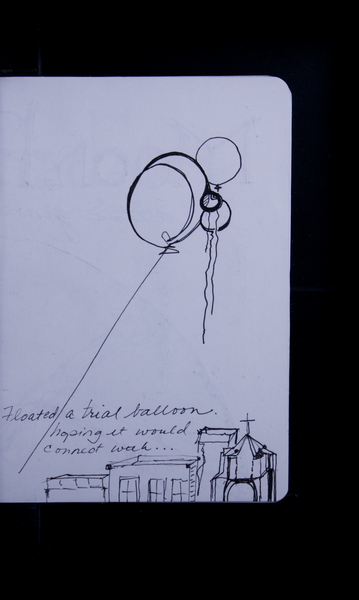 Floated a trial balloon.
hoping it would
connect with...